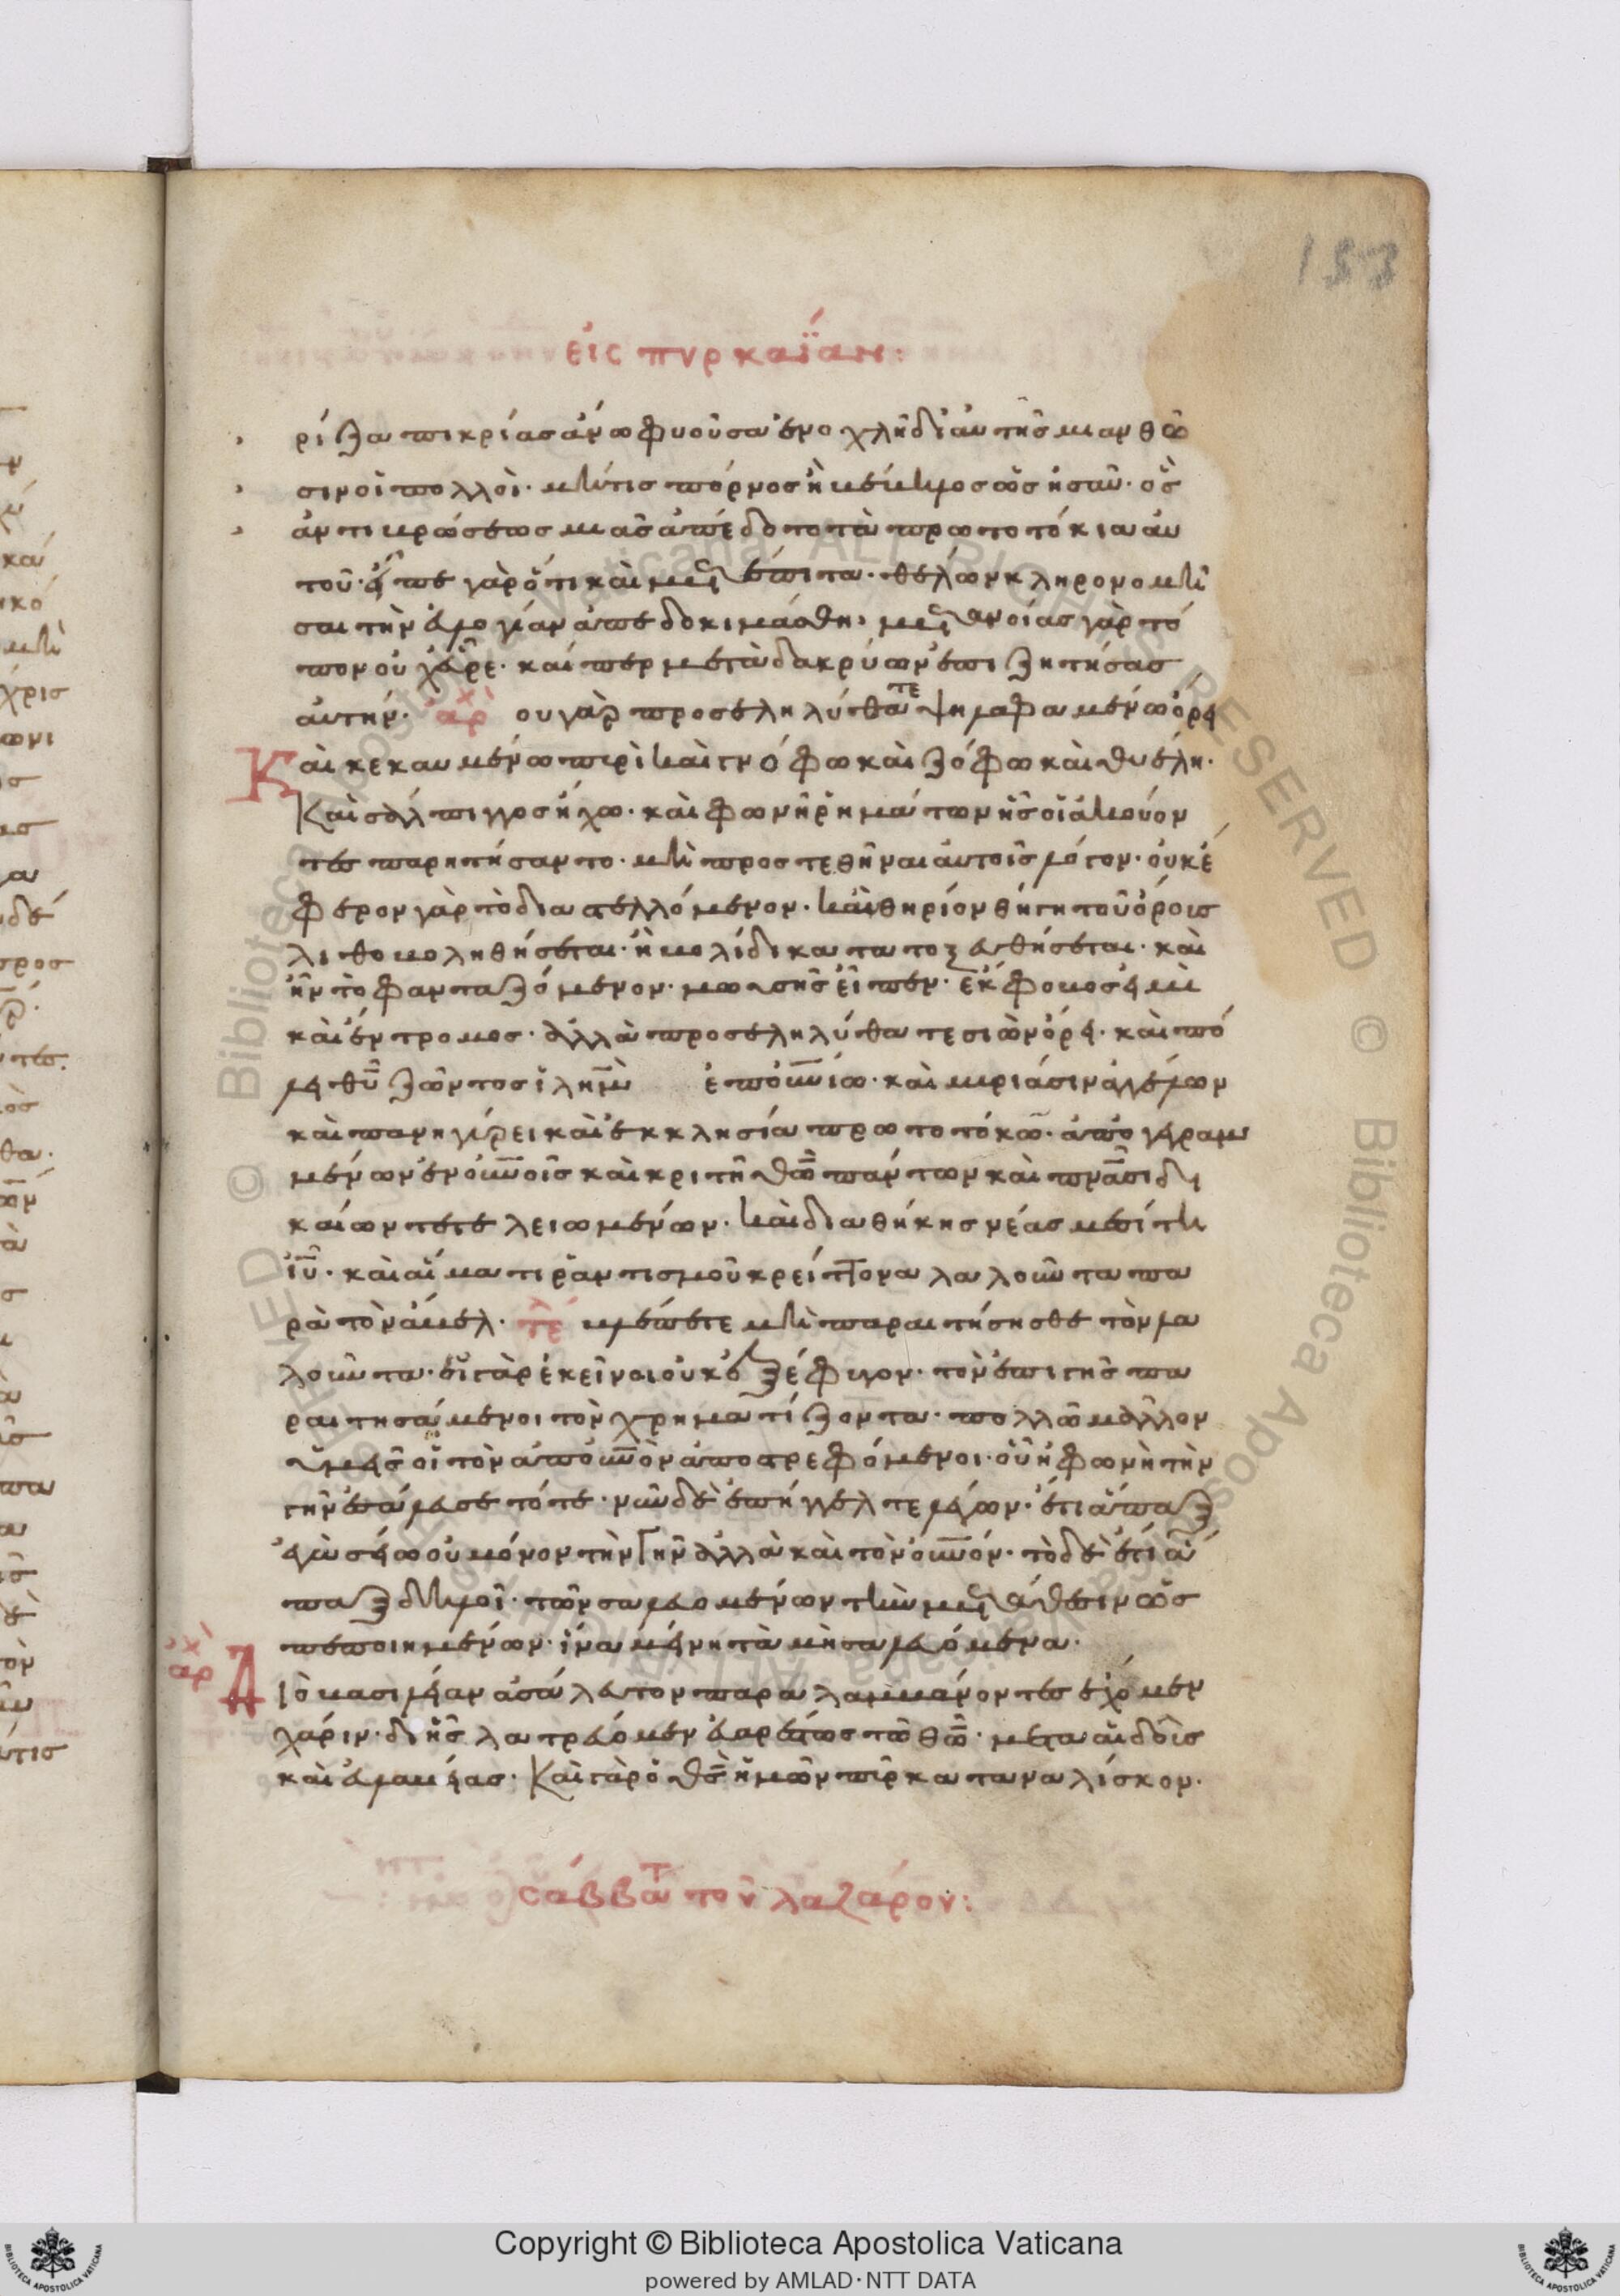 153
εἰς πυρκαϊάν:
ρίζα πικρίας ἄνω φύουσα ἐνοχλῆ δι' αὐτῆς μιανθῶ
σιν οἱ πολλοί· μή τις πόρνος ἢ βέβηλος ὡς ἡσαῦ· ὃς
ἀντι βρώσεως μιᾶς ἀπέδοτο τὰ πρωτοτόκια αὐ
τοῦ· γὰρ ὅτι καὶ μετέπειτα· θέλων κληρονομῆ
σαι τὴν εὐλογίαν ἀπεδοκιμάσθη· μετανοίας γὰρ τό
πον οὐχ εὗρε· καίπερ μετὰ δακρύων ἐπιζητήσας
αὐτήν· ἀρχ ου γὰρ προσεληλύθατε ψηλαφαμένω ὄρει
Καὶ κεκαυμένω πυρὶ καὶ γνόφω καὶ ζόφω καὶ θυέλη·
Καὶ σάλπιγγος ἤχω· καὶ φωνῆ ῥημάτων ἧς οἱ ἀκούον
τες παρητήσαντο· μὴ προστεθῆναι αὐτοῖς λόγον· οὐκ ἔ
φερον γὰρ τὸ διαστελλόμενον· κἂν θηρίον θήγη τοῦ ὄροις
λιθοβοληθήσεται· ἢ βολίδι κατατοξευθήσεται· καὶ
ἦν τὸ φανταζόμενον· μωυσῆς εἶπεν· ἔκφοβός εἰμι
καὶ ἔντρομος· ἀλλὰ προσεληλύθατε σιὼν ὄρει· καὶ πό
λει θῦ ζῶντος ἱλημ ἐποῦνίω· καὶ μυριάσιν ἀγγέλων
καὶ πανηγύρει καὶ ἐκκλησία πρωτοτόκω· ἀπογεγραμ
μένων ἐν οὐνοῖς καὶ κριτῆ θῶ πάντων καὶ πνασι δι
καίων τετελειωμένων· καὶ διαθήκης νέας μεσίτη
ἰῦ· καὶ αἵματι ῥαντισμοῦ κρείττονα λαλοῦντα πα
ρὰ τὸν ἄβελ· τε βλέπετε μὴ παραιτήσησθε τὸν λα
λοῦντα· εἰ γὰρ ἐκεῖνοι οὐκ ἐξέφυγον· τὸν ἐπι γῆς πα
ραιτησάμενοι τὸν χρηματίζοντα· πολλῶ μᾶλλον
ὑμεῖς οἱ τὸν ἀπ' οὐνὸν ἀποστρεφόμενοι· οὗ ἡ φωνὴ τὴν
γῆν ἐσάλευσε τότε· νῦν δὲ ἐπήγγελται λέγων· ἔτι ἅπαξ
ἐγὼ σείω οὐ μόνον τὴν γῆν ἀλλὰ καὶ τὸν οὐνόν· τὸ δὲ ἔτι ἅ
παξ δηλοῖ· τῶν σαλευομένων τὴν μετάθεσιν ὡς
πεποιημένων· ἵνα μείνη τὰ μὴ σαλευόμενα·
ἀρχ Διὸ βασιλείαν ἀσάλευτον παραλαμβάνοντες ἔχομεν
χάριν· δι' ἧς λατρεύομεν εὐαρέστως τῶ θῶ· μετα αἰδοῖς
καὶ εὐλαβείας· Καὶ γὰρ ὁ θς ἡμῶν πῦρ καταναλίσκον·
σαββάτ τοῦ λαζάρου: